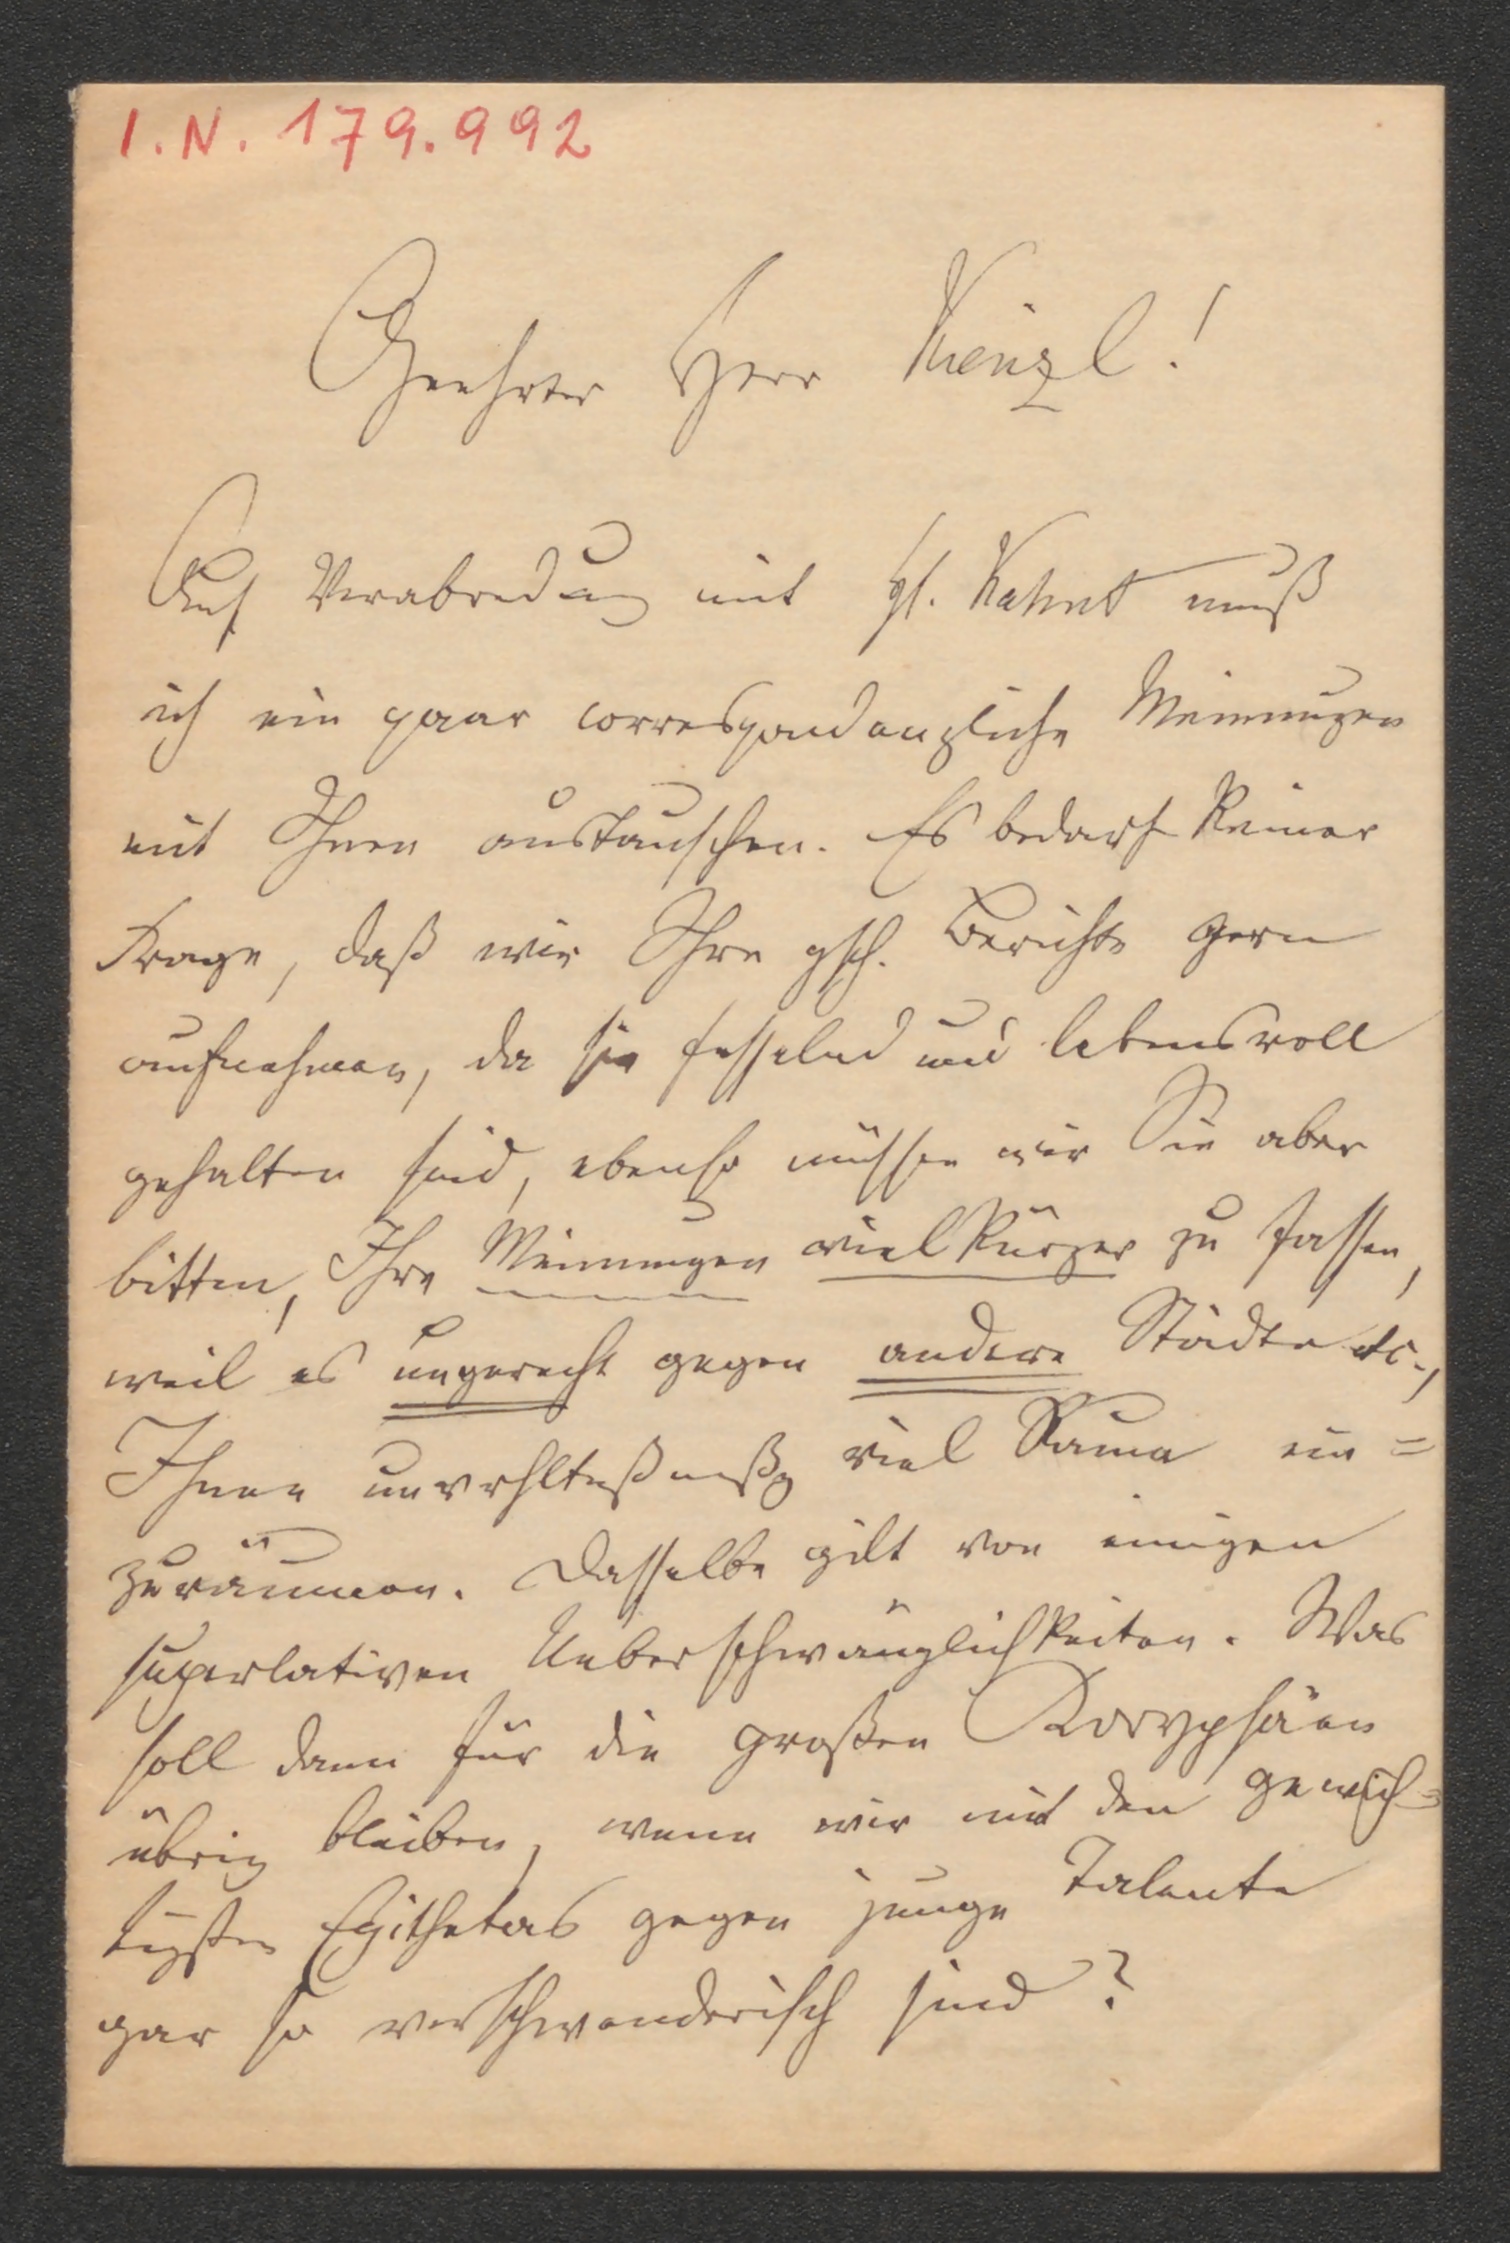 I.N. 179.992
Geehrter Herr Kienzl!
Auf Verabredung mit H. Kahnt muß
ich ein paar correspondenzliche Meinungen
mit Ihnen austauschen. Es bedarf keiner
Frage, daß wir Ihre gsch. Berichte gern
aufnehmen, da sie fesselnd und lebensvoll
gehalten sind, ebenso müssen wir Sie aber
bitten, Ihre Meinungen viel kürzer zu fassen,
weil es ungerecht gegen andere Städte etc.,
Ihnen unvrhltnßmßg viel Raum ein=
zuräumen. Dasselbe gilt von einigen
superlativen Ueberschwänglichkeiten. Was
soll dann für die großen Koryphäen
übrig bleiben, wenn wir mit den gewich=
tigsten Epithetas gegen junge Talente
gar so verschwenderisch sind?